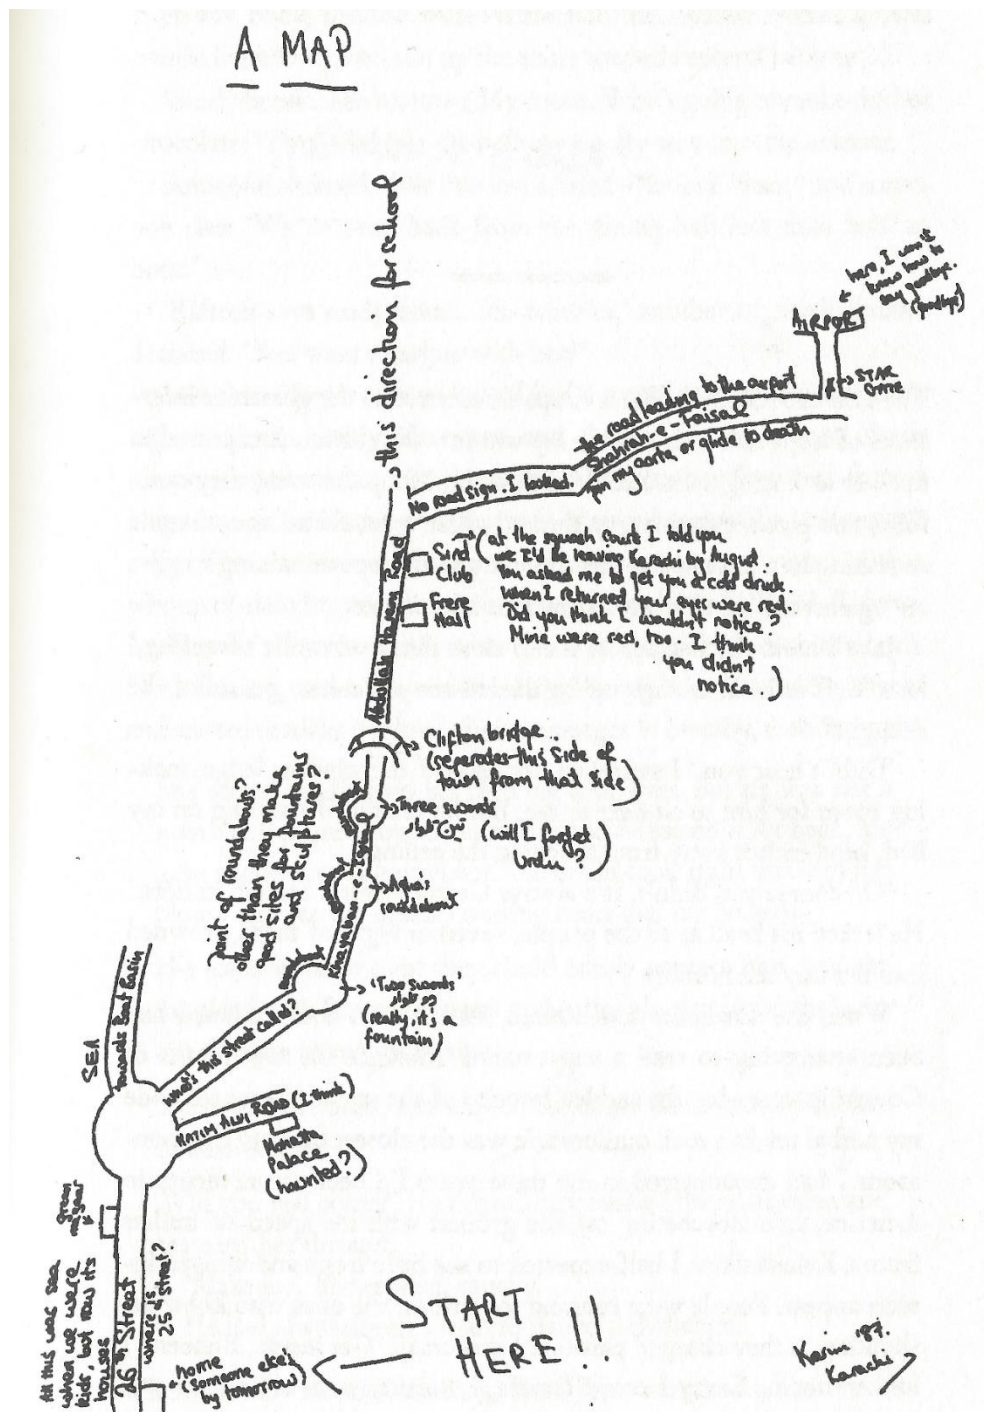 A MAP
→ this direction for school
here, I won't
know how to
say goodbye
(goodbye)
AIRPORT
→ STAR
Gate
the road leading to the airport
Shahrah-e-Faisal
for my aorta or glide to death
No road sign. I looked.
Abdullah Haroon Road
Sind
Club
→ (at the squash court I told you
we I'd be leaving Karachi by August.
You asked me to get you a cold drink.
When I returned your eyes were red.
Did you think I wouldn't notice?
Mine were red, too. I think
you didn't
notice.)
Frere
Hall
→ Clifton bridge
(separates this side of
town from that side)
→ Three swords
(will I forget
Urdu?)
Point of roundabouts?
other than they make
good sites for fountains
and sculptures?
Khayaban-e-Iqbal
→ 'Two swords'
(really, it's a
fountain)
SEA
towards Boat Basin
What's this street called?
HATIM ALVI ROAD (I think)
Mohatta
Palace
(haunted?)
All this was sea
when we were
kids, but now it's
houses
26th Street
where is
25th street?
Home
(someone else's
by tomorrow)
START
HERE!!
Karim '87
Karachi